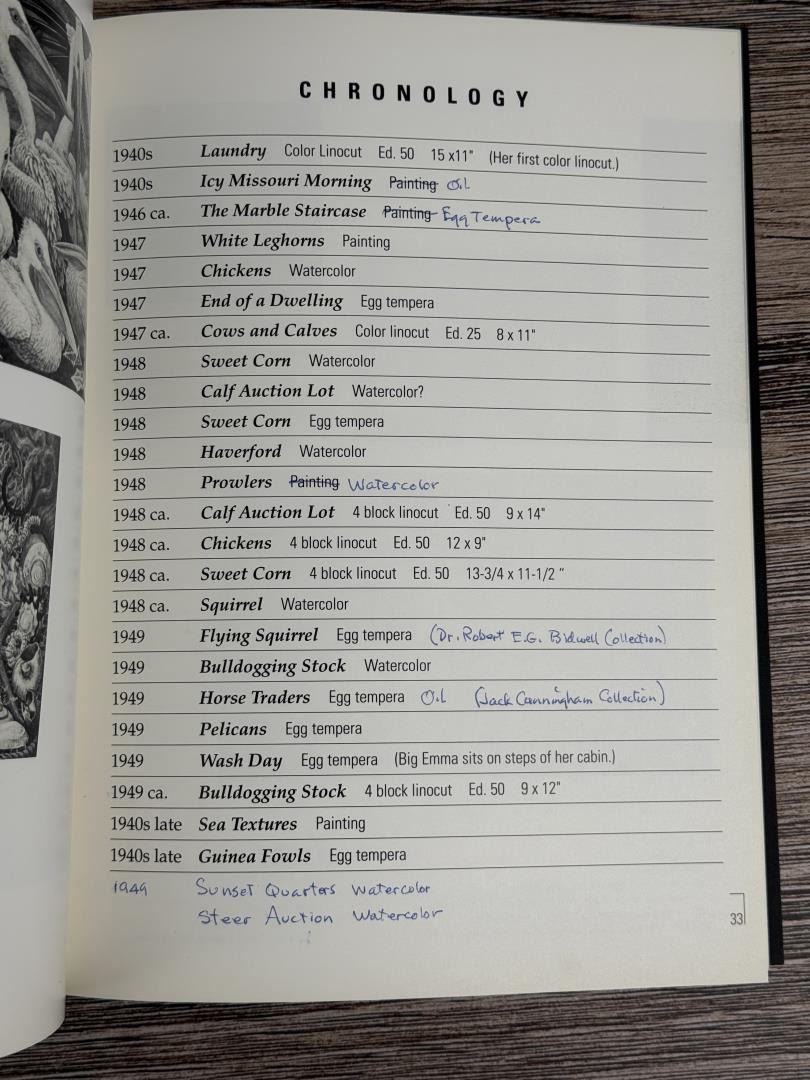 CHRONOLOGY
1940s Laundry Color Linocut Ed. 50 15 x11" (Her first color linocut.)
1940s Icy Missouri Morning Painting Oil
1946 ca. The Marble Staircase Painting Egg Tempera
1947 White Leghorns Painting
1947 Chickens Watercolor
1947 End of a Dwelling Egg tempera
1947 ca. Cows and Calves Color linocut Ed. 25 8 x 11"
1948 Sweet Corn Watercolor
1948 Calf Auction Lot Watercolor?
1948 Sweet Corn Egg tempera
1948 Haverford Watercolor
1948 Prowlers Painting Watercolor
1948 ca. Calf Auction Lot 4 block linocut Ed. 50 9 x 14"
1948 ca. Chickens 4 block linocut Ed. 50 12 x 9"
1948 ca. Sweet Corn 4 block linocut Ed. 50 13-3/4 x 11-1/2 "
1948 ca. Squirrel Watercolor
1949 Flying Squirrel Egg tempera (Dr. Robert E.G. Bidwell Collection)
1949 Bulldogging Stock Watercolor
1949 Horse Traders Egg tempera Oil (Jack Cunningham Collection)
1949 Pelicans Egg tempera
1949 Wash Day Egg tempera (Big Emma sits on steps of her cabin.)
1949 ca. Bulldogging Stock 4 block linocut Ed. 50 9 x 12"
1940s late Sea Textures Painting
1940s late Guinea Fowls Egg tempera
1949 Sunset Quarters Watercolor
Steer Auction Watercolor
33